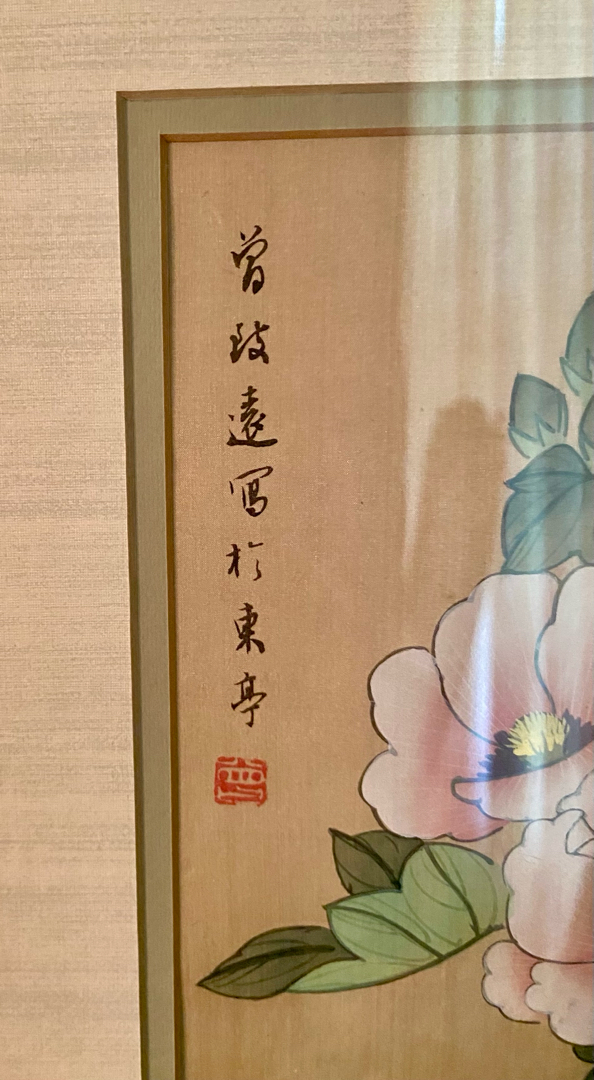 曾致遠寫於東亭